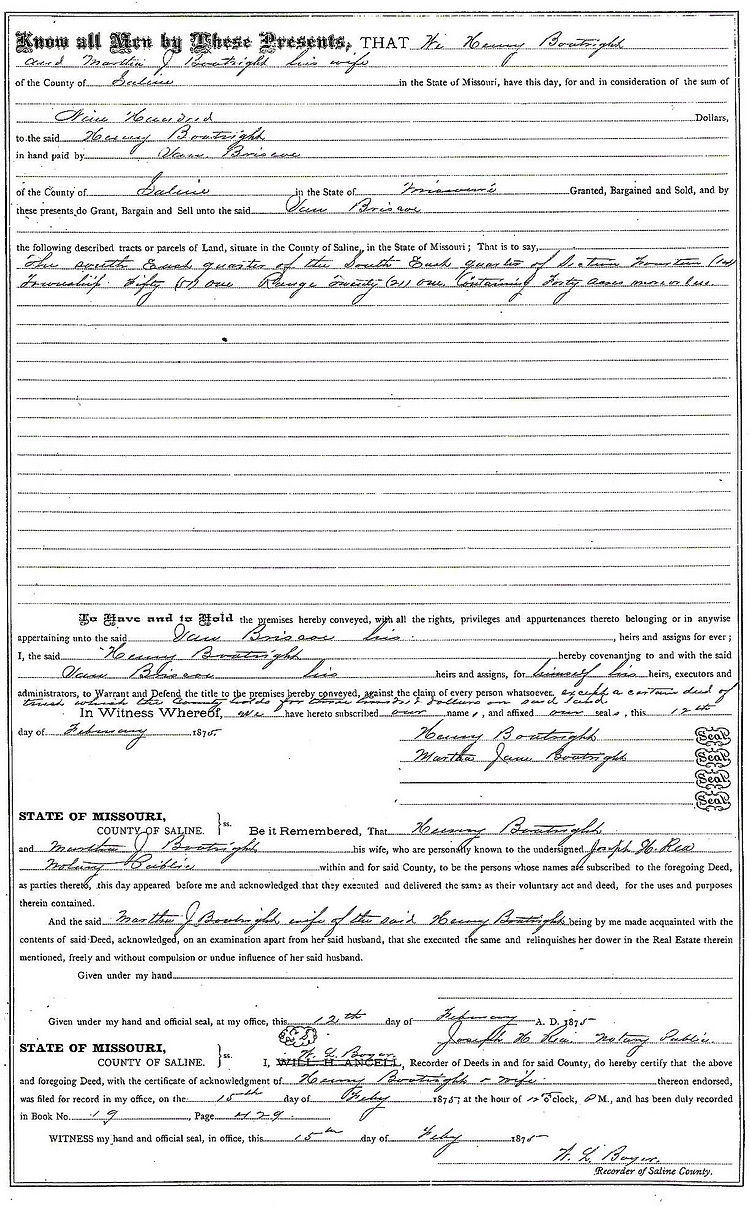 Know all Men by These Presents, THAT We Henry Boatright
and Martha J Boatright his wife
of the County of Saline in the State of Missouri, have this day, for and in consideration of the sum of
Nine Hundred Dollars,
to the said Henry Boatright
in hand paid by Van Briscoe
of the County of Saline in the State of Missouri Granted, Bargained and Sold, and by
these presents do Grant, Bargain and Sell unto the said Van Briscoe
the following described tracts or parcels of Land, situate in the County of Saline, in the State of Missouri; That is to say,
The south East quarter of the South East quarter of Section Fourteen (14)
Township Fifty (51) one Range Twenty (21) one Containing Forty acres more or less
To Have and to Hold the premises hereby conveyed, with all the rights, privileges and appurtenances thereto belonging or in anywise
appertaining unto the said Van Briscoe his , heirs and assigns for ever;
I, the said Henry Boatright hereby covenanting to and with the said
Van Briscoe his heirs and assigns, for himself his heirs, executors and
administrators, to Warrant and Defend the title to the premises hereby conveyed, against the claim of every person whatsoever, except a certain deed of
trust which the County holds for three hundred dollars on said land
In Witness Whereof, we have hereto subscribed our names, and affixed our seals, this 12th
day of February 1875
Henry Boatright Seal
Martha Jane Boatright Seal
Seal
Seal
STATE OF MISSOURI,
COUNTY OF SALINE. } ss. Be it Remembered, That Henry Boatright
and Martha J Boatright his wife, who are personally known to the undersigned Joseph H. Rea
Notary Public within and for said County, to be the persons whose names are subscribed to the foregoing Deed,
as parties thereto, this day appeared before me and acknowledged that they executed and delivered the same as their voluntary act and deed, for the uses and purposes
therein contained.
And the said Martha J Boatright wife of the said Henry Boatright being by me made acquainted with the
contents of said Deed, acknowledged, on an examination apart from her said husband, that she executed the same and relinquishes her dower in the Real Estate therein
mentioned, freely and without compulsion or undue influence of her said husband.
Given under my hand
Given under my hand and official seal, at my office, this 12th day of February A. D. 1875
Joseph H Rea Notary Public
STATE OF MISSOURI,
COUNTY OF SALINE. } ss. W. L. Boyer
I, WILL H. ANCELL, Recorder of Deeds in and for said County, do hereby certify that the above
and foregoing Deed, with the certificate of acknowledgment of Henry Boatright & wife thereon endorsed,
was filed for record in my office, on the 15th day of Feby 1875 at the hour of 12 o'clock, P M., and has been duly recorded
in Book No. 19, Page 429
WITNESS my hand and official seal, in office, this 15th day of Feby 1875
W. L. Boyer.
Recorder of Saline County.